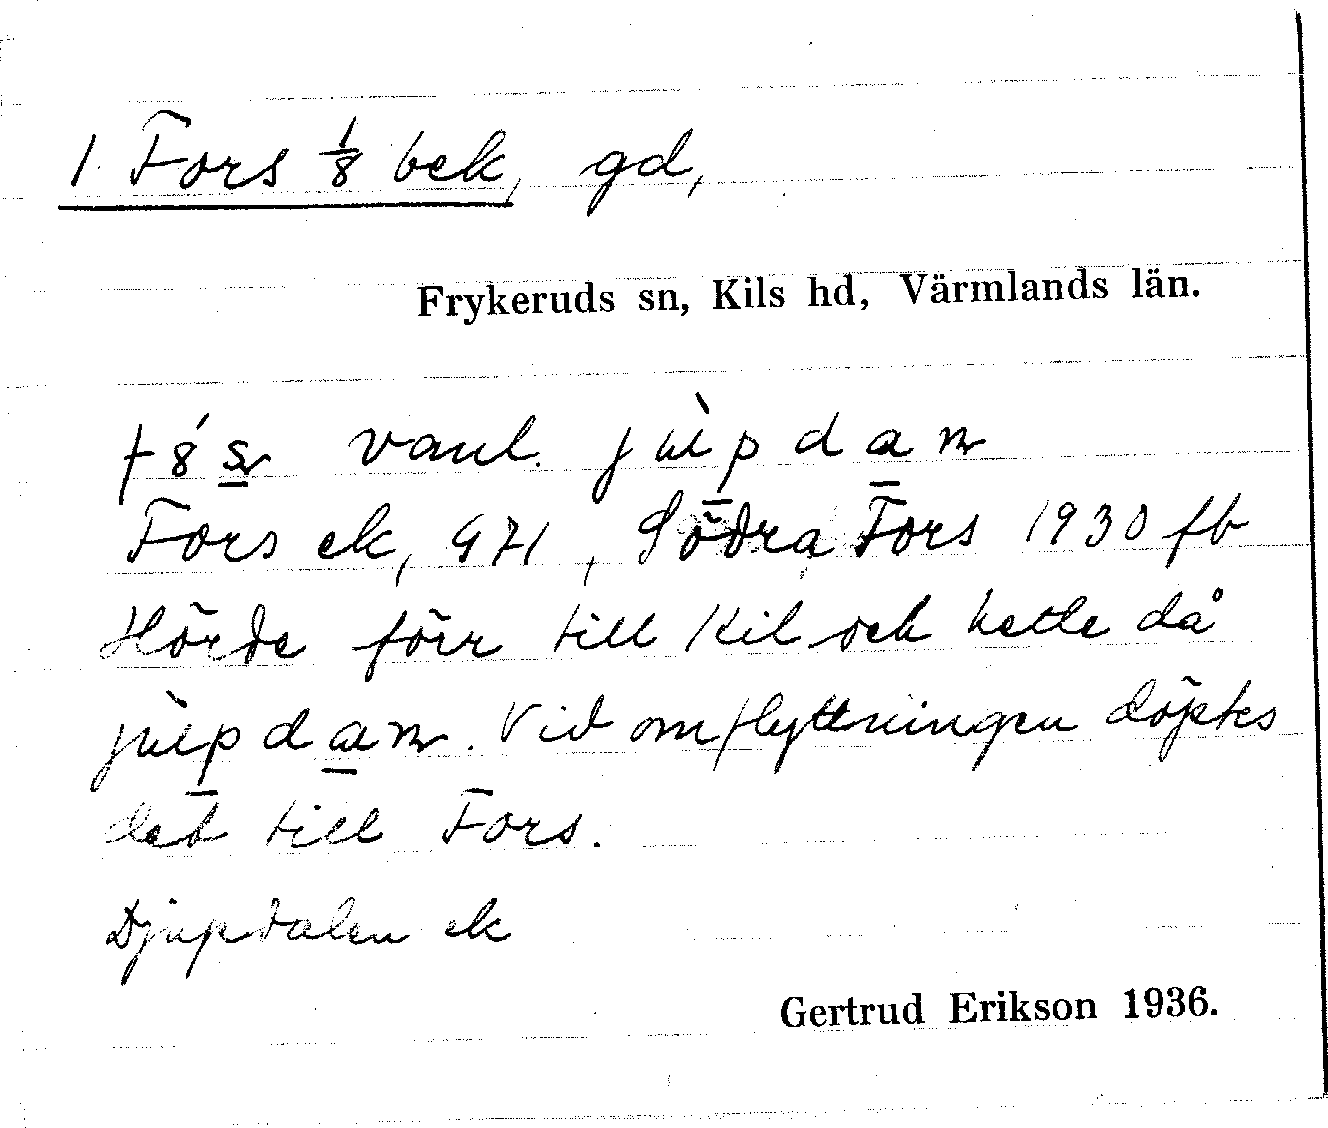 1. Fors 1/8 bek, gd,
Frykeruds sn, Kils hd, Värmlands län.
vanl. jùpdan
Fors ek, 971, Södra Fors 1930 fb
Hörde förr till Kil och hette då
jùpdan. Vid omflyttningen döptes
det till Fors.
Djupdalen ek
Gertrud Erikson 1936.